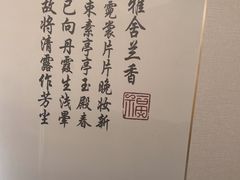 雅舍兰香
霓裳片片晚妆新
束素亭亭玉殿春
已向丹霞生浅晕
故将清露作芳尘